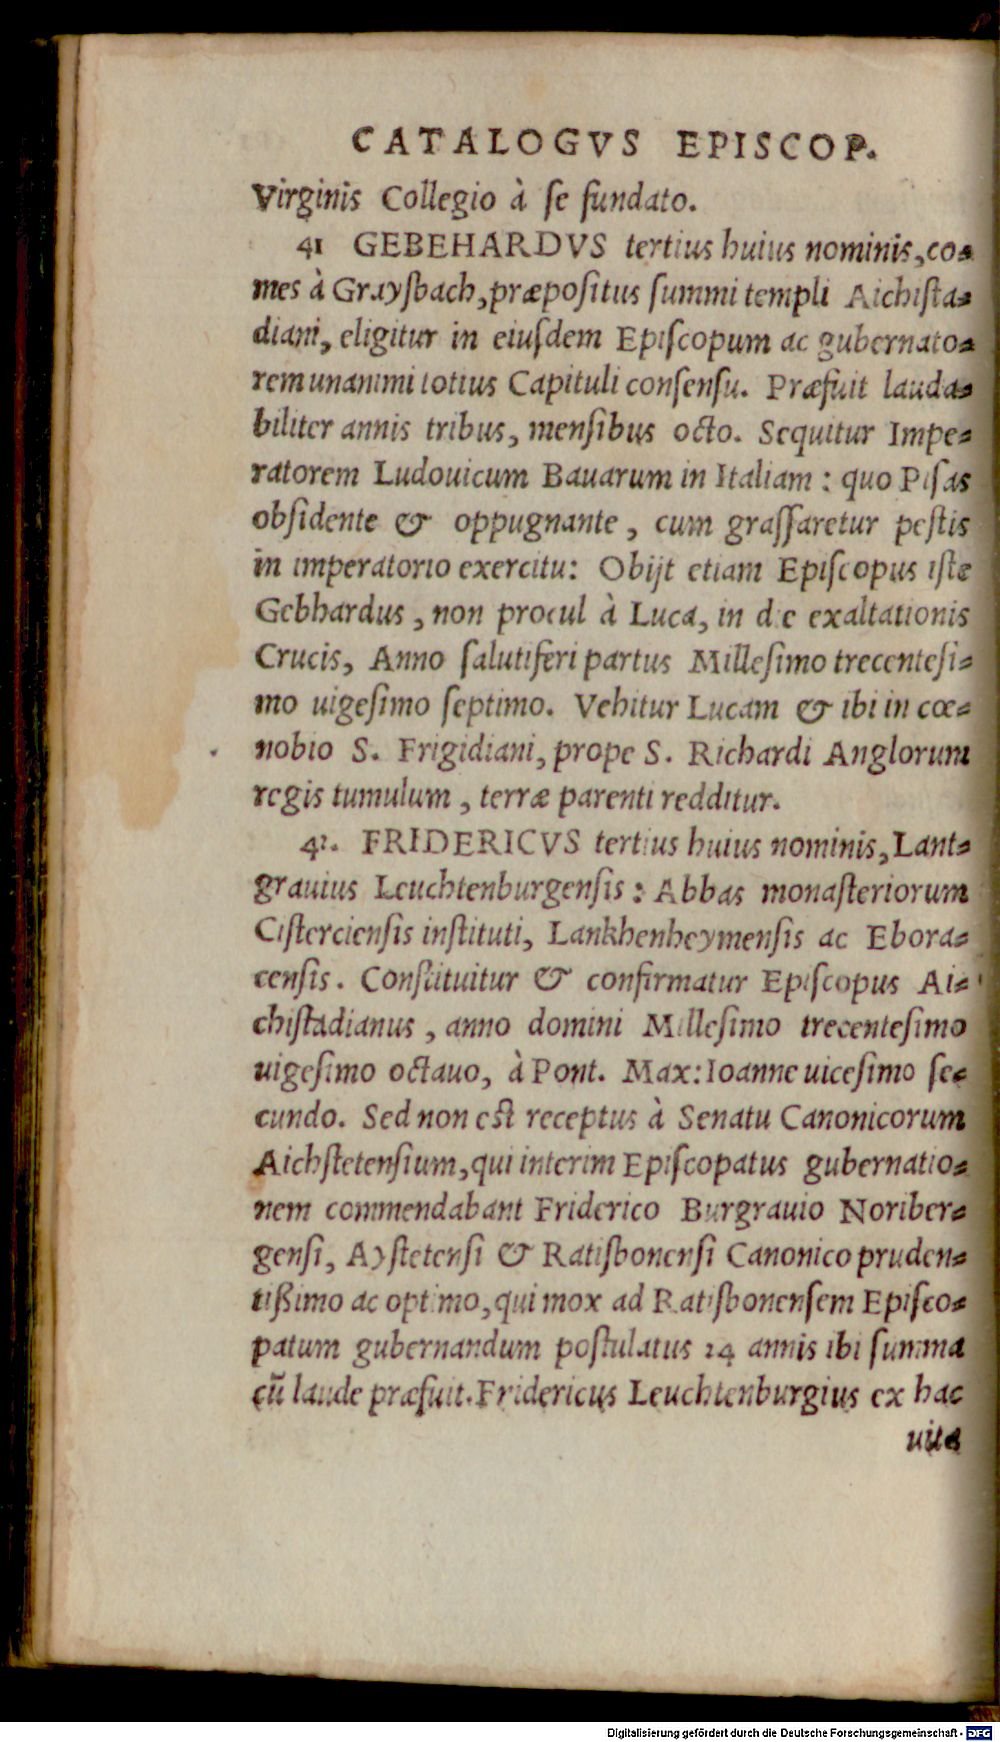 CATALOGVS EPISCOP.
Virginis Collegio à se fundato.
41 GEBEHARDVS tertius huius nominis, co-
mes à Grayſbach, præpositus ſummi templi Aichiſta-
diani, eligitur in eiuſdem Epiſcopum ac gubernato-
rem unanimi totius Capituli conſenſu. Præfuit lauda-
biliter annis tribus, menſibus octo. Sequitur Impe-
ratorem Ludouicum Bauarum in Italiam: quo Piſas
obſidente & oppugnante, cum graſſaretur peſtis
in imperatorio exercitu: Obijt etiam Epiſcopus iſte
Gebhardus, non procul à Luca, in die exaltationis
Crucis, Anno ſalutiferi partus Milleſimo trecenteſi-
mo uigeſimo ſeptimo. Vehitur Lucam & ibi in cœ-
nobio S. Frigidiani, prope S. Richardi Anglorum
regis tumulum, terræ parenti redditur.
42. FRIDERICVS tertius huius nominis, Lant-
grauius Leuchtenburgenſis: Abbas monaſteriorum
Ciſtercienſis inſtituti, Lankhenheymenſis ac Ebora-
cenſis. Conſtituitur & confirmatur Epiſcopus Ai-
chiſtadianus, anno domini Milleſimo trecenteſimo
uigeſimo octauo, à Pont. Max: Ioanne uiceſimo ſe-
cundo. Sed non eſt receptus à Senatu Canonicorum
Aichſtetenſium, qui interim Epiſcopatus gubernatio-
nem commendabant Friderico Burgrauio Noriber-
genſi, Ayſtetenſi & Ratiſbonenſi Canonico pruden-
tißimo ac optimo, qui mox ad Ratiſbonenſem Epiſco-
patum gubernandum poſtulatus 24 annis ibi ſumma
cū laude præfuit. Fridericus Leuchtenburgius ex hac
uita
Digitalisierung gefördert durch die Deutsche Forschungsgemeinschaft - DFG